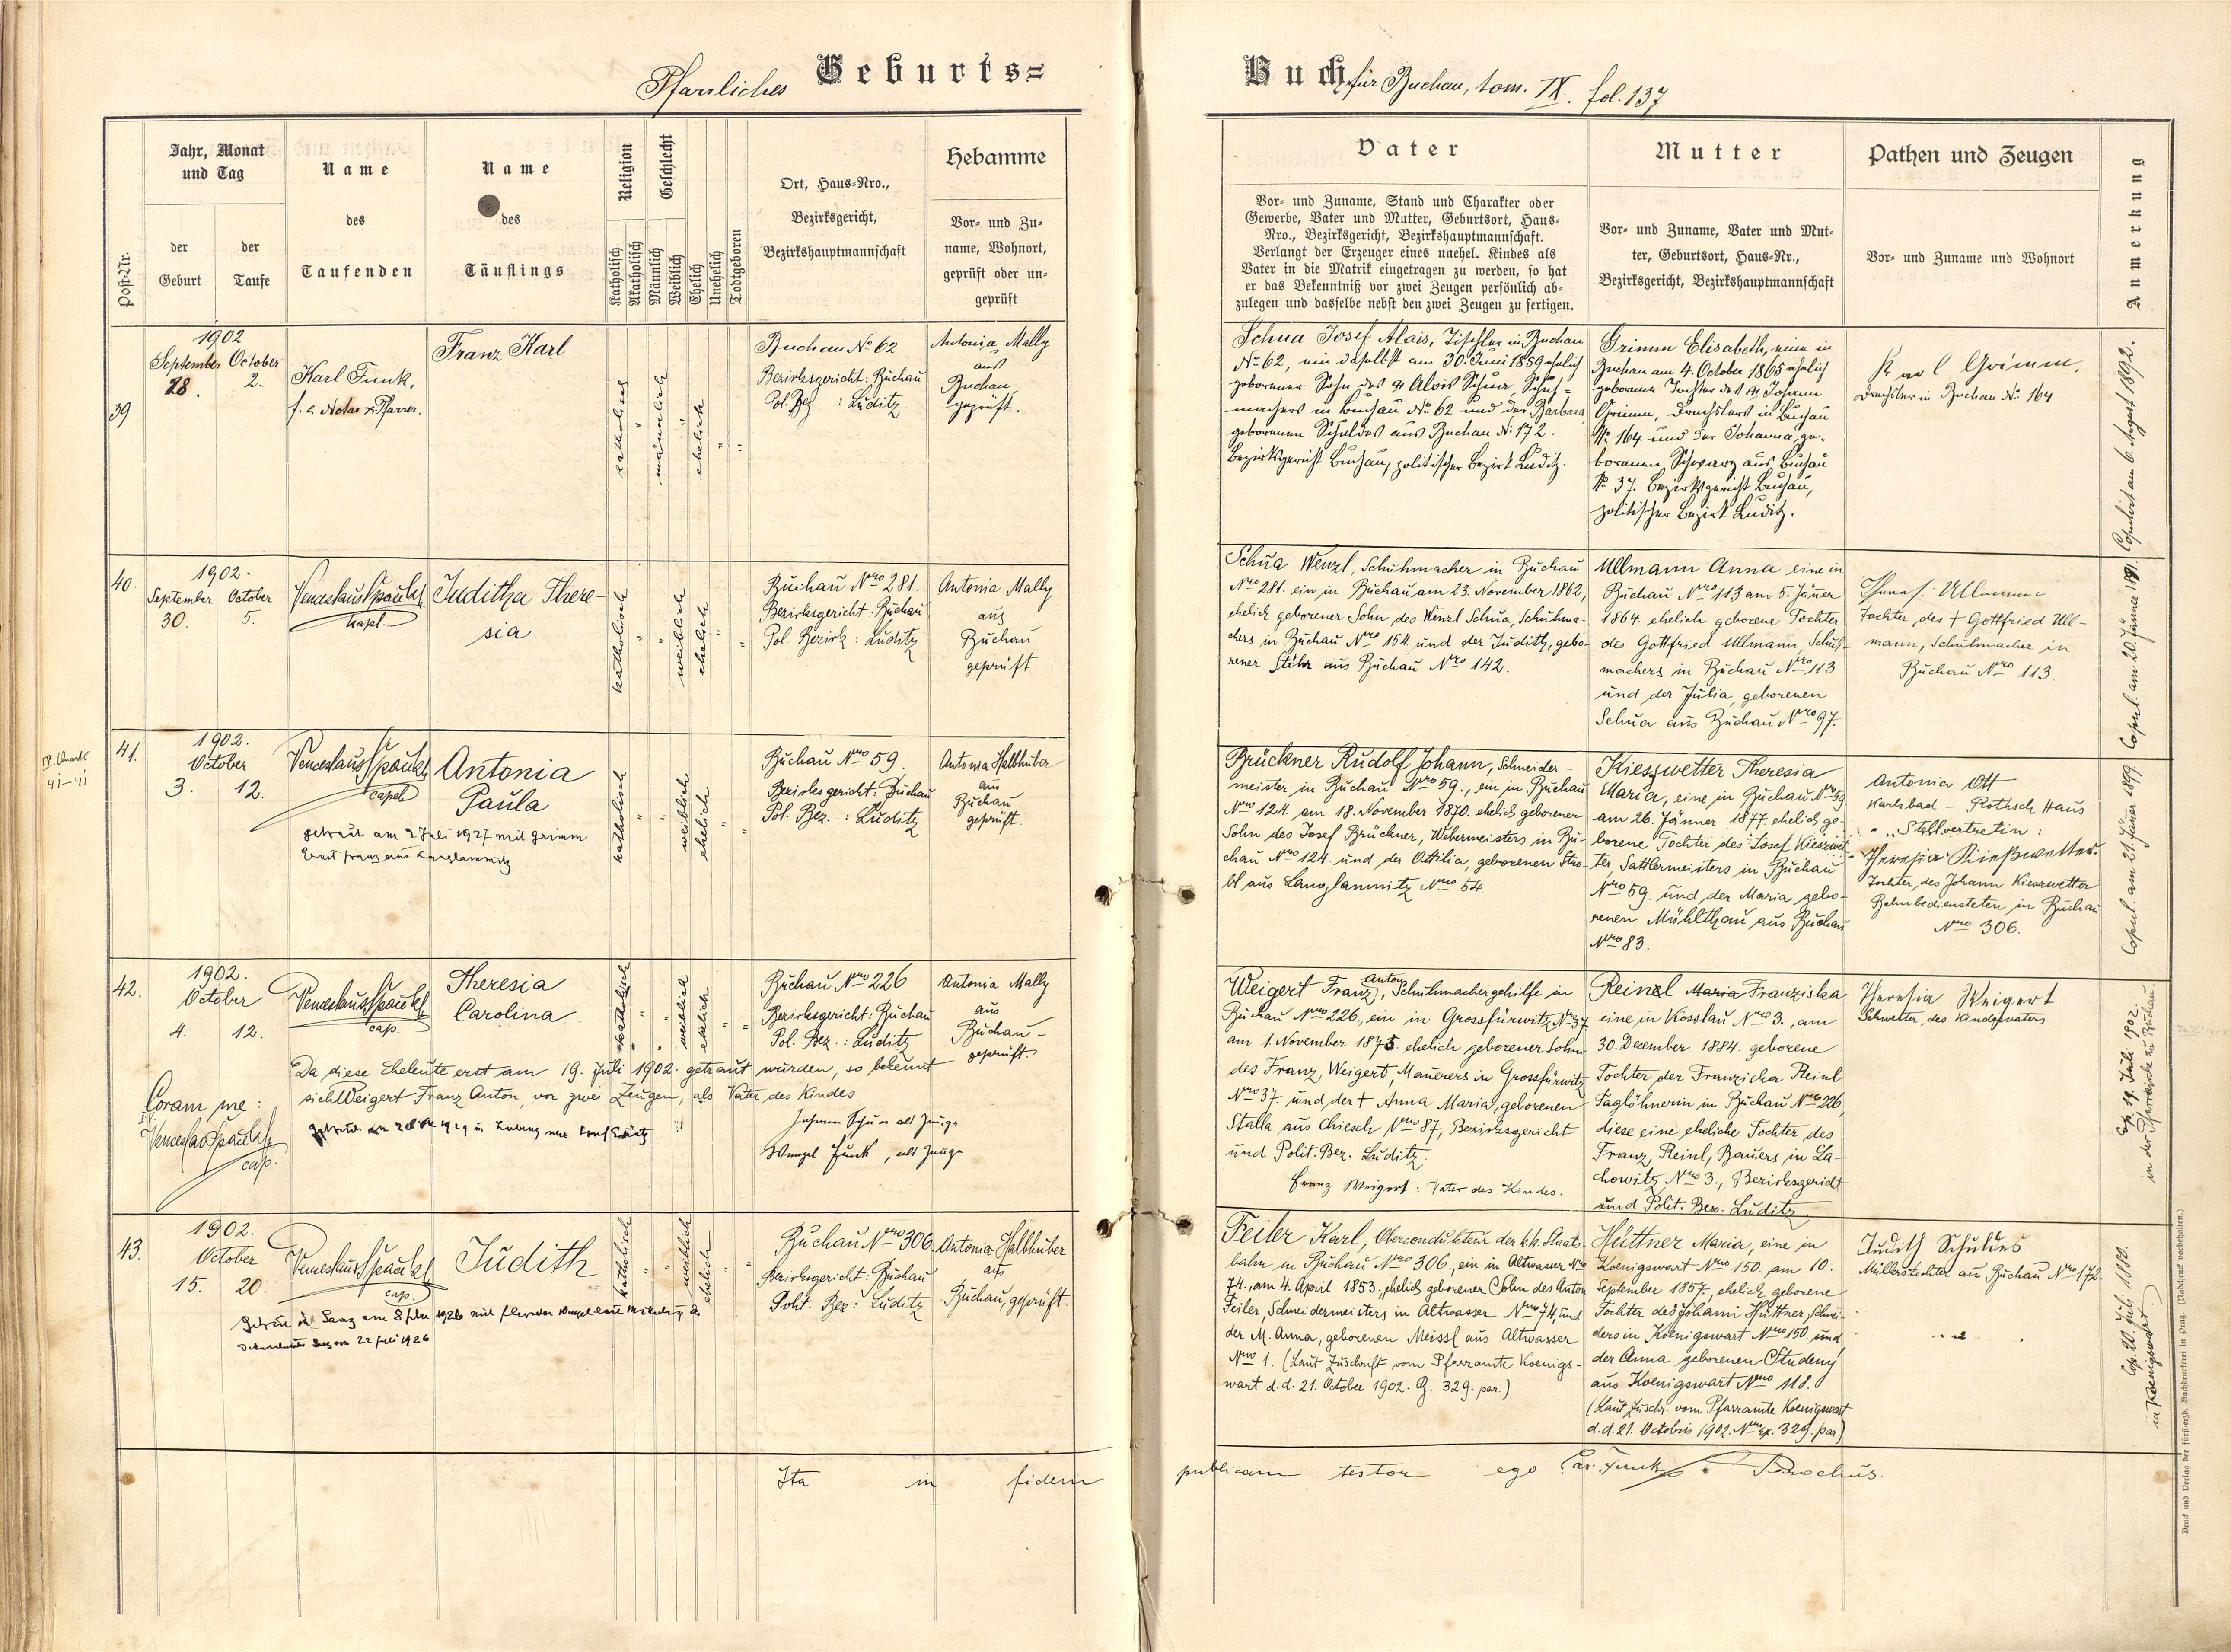 Pfarrliches Geburts=
Buch für Buchau, tom. IX. fol. 137
Post-Nr.
Jahr, Monat
und Tag
der
Geburt
der
Taufe
Name
des
Taufenden
Name
des
Täuflings
Religion
Katholisch
Akatholisch
Geschlecht
Männlich
Weiblich
Ehelich
Unehelich
Todtgeboren
Ort, Haus-Nro.,
Bezirksgericht,
Bezirkshauptmannschaft
Hebamme
Vor- und Zu-
name, Wohnort,
geprüft oder un-
geprüft
Vater
Vor- und Zuname, Stand und Charakter oder
Gewerbe, Vater und Mutter, Geburtsort, Haus-
Nro., Bezirksgericht, Bezirkshauptmannschaft.
Verlangt der Erzeuger eines unehel. Kindes als
Vater in die Matrik eingetragen zu werden, so hat
er das Bekenntniß vor zwei Zeugen persönlich ab-
zulegen und dasselbe nebst den zwei Zeugen zu fertigen.
Mutter
Vor- und Zuname, Vater und Mut-
ter, Geburtsort, Haus-Nr.,
Bezirksgericht, Bezirkshauptmannschaft
Pathen und Zeugen
Vor- und Zuname und Wohnort
Anmerkung
39
1902
September October
28. 2.
Karl Funk,
f. e. Notar, Pfarrer.
Franz Karl
katholisch
männlich
ehelich
Buchau No 62
Bezirksgericht: Buchau
Pol. Bez : Luditz
Antonia Mally
aus
Buchau,
geprüft.
Schua Josef Alois, Tischler in Buchau
No 62, ein daselbst am 30. Juni 1859 ehelich
geborener Sohn des Alois Schua, Schuh-
machers in Buchau No 62 und der Barbara,
geborenen Schuldes aus Buchau No 172.
Bezirksgericht Buchau, politischer Bezirk Luditz.
Grimm Elisabeth, eine in
Buchau am 4. October 1865 ehelich
geborene Tochter des Johann
Grimm, Drechslers in Buchau
No 164 und der Johanna, ge-
borenen Schwarz aus Buchau
No 37. Bezirksgericht Buchau,
politischer Bezirk Luditz.
Karl Grimm,
Drechsler in Buchau No 164
Copuliert am 6. August 1892.
40.
1902.
September October
30. 5.
Venceslaus Spačil
kapl.
Juditha There-
sia
katholisch
weiblich
ehelich
Buchau Nro 281.
Bezirksgericht: Buchau
Pol. Bezirk: Luditz
Antonia Mally
aus
Buchau
geprüft
Schua Wenzl, Schuhmacher in Buchau
Nro 281. ein in Buchau am 23. November 1862,
ehelich geborener Sohn des Wenzl Schua, Schuhma-
chers in Buchau Nro 154. und der Judith, gebo-
rener Stöhr aus Buchau Nro 142.
Ullmann Anna eine in
Buchau Nro 113 am 5. Jäner
1864. ehelich geborene Tochter
des Gottfried Ullmann, Schuh-
machers in Buchau Nro 113
und der Julia, geborenen
Schua aus Buchau Nro 97.
Tochter, des † Gottfried Ull-
mann, Schuhmacher in
Buchau Nro 113.
Copul. am 20. Jänner 1891.
41-41
41.
1902.
October
3. 12.
Venceslaus Spačil
capel.
Antonia
Paula
katholisch
weiblich
ehelich
Buchau Nro 59.
Bezirksgericht: Buchau
Pol. Bez. : Luditz
Antonia Halbhuber
aus
Buchau
geprüft.
getraut am 2 Juli 1927 mit Grimm
Ernst Franz aus Langlammitz
Brückner Rudolf Johann, Schneider-
meister in Buchau Nro 59., ein in Buchau
Nro 124. am 18. November 1870. ehelich geborener
Sohn des Josef Brückner, Webermeisters in Bu-
chau Nro 124. und der Ottilia, geborenen Stro-
bl aus Langlammitz Nro 54.
Kieswetter Theresia
Maria, eine in Buchau Nro 59
am 26. Jänner 1877. ehelich ge-
borene Tochter des Josef Kieswet-
ter, Sattlermeisters in Buchau
Nro 59. und der Maria gebo-
renen Mühlthau aus Buchau
Nro 83.
Antonia Ott
Karlsbad - Rothsch Haus
Stellvertretin:
Theresia Kießwetter.
Tochter, des Johann Kieswetter
Bahnbediensteten in Buchau
Nro 306.
Copul. am 21. Jäner 1899.
42.
1902.
October
4. 12.
Venceslaus Spačil
cap.
Theresia
Carolina
katholisch
weiblich
ehelich
Buchau Nro 226
Bezirksgericht: Buchau
Pol. Bez.: Luditz
Antonia Mally
aus
Buchau -
geprüft.
Da diese Eheleute erst am 19. Juli 1902. getraut wurden, so bekennt
sich Weigert Franz Anton, vor zwei Zeugen, als Vater des Kindes
Coram me:
Venceslaus Spačil
cap.
Johann Schua als Zeuge
Wenzel Funk, als Zeuge
Weigert Franz Anton, Schuhmachergehilfe in
Buchau Nro 226., ein in Grossfürwitz Nro 37
am 1. November 1875. ehelich geborener Sohn
des Franz Weigert, Mauerers in Grossfürwitz
Nro 37. und der † Anna Maria, geborenen
Stalla aus Chiesch Nro 87, Bezirksgericht
und Polit. Bez. Luditz.
Franz Weigert: Vater des Kindes.
Reinl Maria Franziska
eine in Kosslau Nro 3. am
30. December 1884. geborene
Tochter der Franziska Reinl
Taglöhnerin in Buchau Nro 226,
diese eine eheliche Tochter des
Franz Reinl, Bauers in La-
chowitz Nro 3., Bezirksgericht
und Polit. Bez. Luditz.
Theresia Weigert
Schwester, des Kindsvaters
Cop. 19. Juli 1902.
in der Pfarrkirche zu Buchau.
43.
1902.
October
15. 20.
Venceslaus Spačil
cap.
Judith
katholisch
weiblich
ehelich
Buchau Nro 306.
Bezirksgericht: Buchau
Polit. Bez: Luditz
Antonia Halbhuber
aus
Buchau, geprüft.
Feiler Karl, Oberconducteur der k.k. Staats-
bahn in Buchau Nro 306., ein in Altwasser Nro
74., am 4. April 1853., ehelich geborener Sohn des Anton
Feiler, Schneidermeisters in Altwasser Nro 74, und
der M. Anna, geborenen Meissl aus Altwasser
Nro 1. (Laut Zuschrift vom Pfarramte Koenigs-
wart d. d. 21. October 1902. Z. 329. par.)
Hüttner Maria, eine in
Koenigswart Nro 150. am 10.
September 1857, ehelich geborene
Tochter des Johann Hüttner, Schnei-
ders in Koenigswart Nro 150. und
der Anna geborenen Studený
aus Koenigswart Nro 118.
(Laut Zuschr. vom Pfarramte Koenigswart
d. d. 21. Octobris 1902. Nro ex. 329. par.)
Judith Schuldes
Müllerstochter aus Buchau Nro 172.
Cop. 20. Juli 1880.
in Koenigswart
Ita in fidem
publicam testor ego Car. Funk, Parochus.
Druck und Verlag der fürsterzb. Buchdruckerei in Prag. (Nachdruck vorbehalten.)